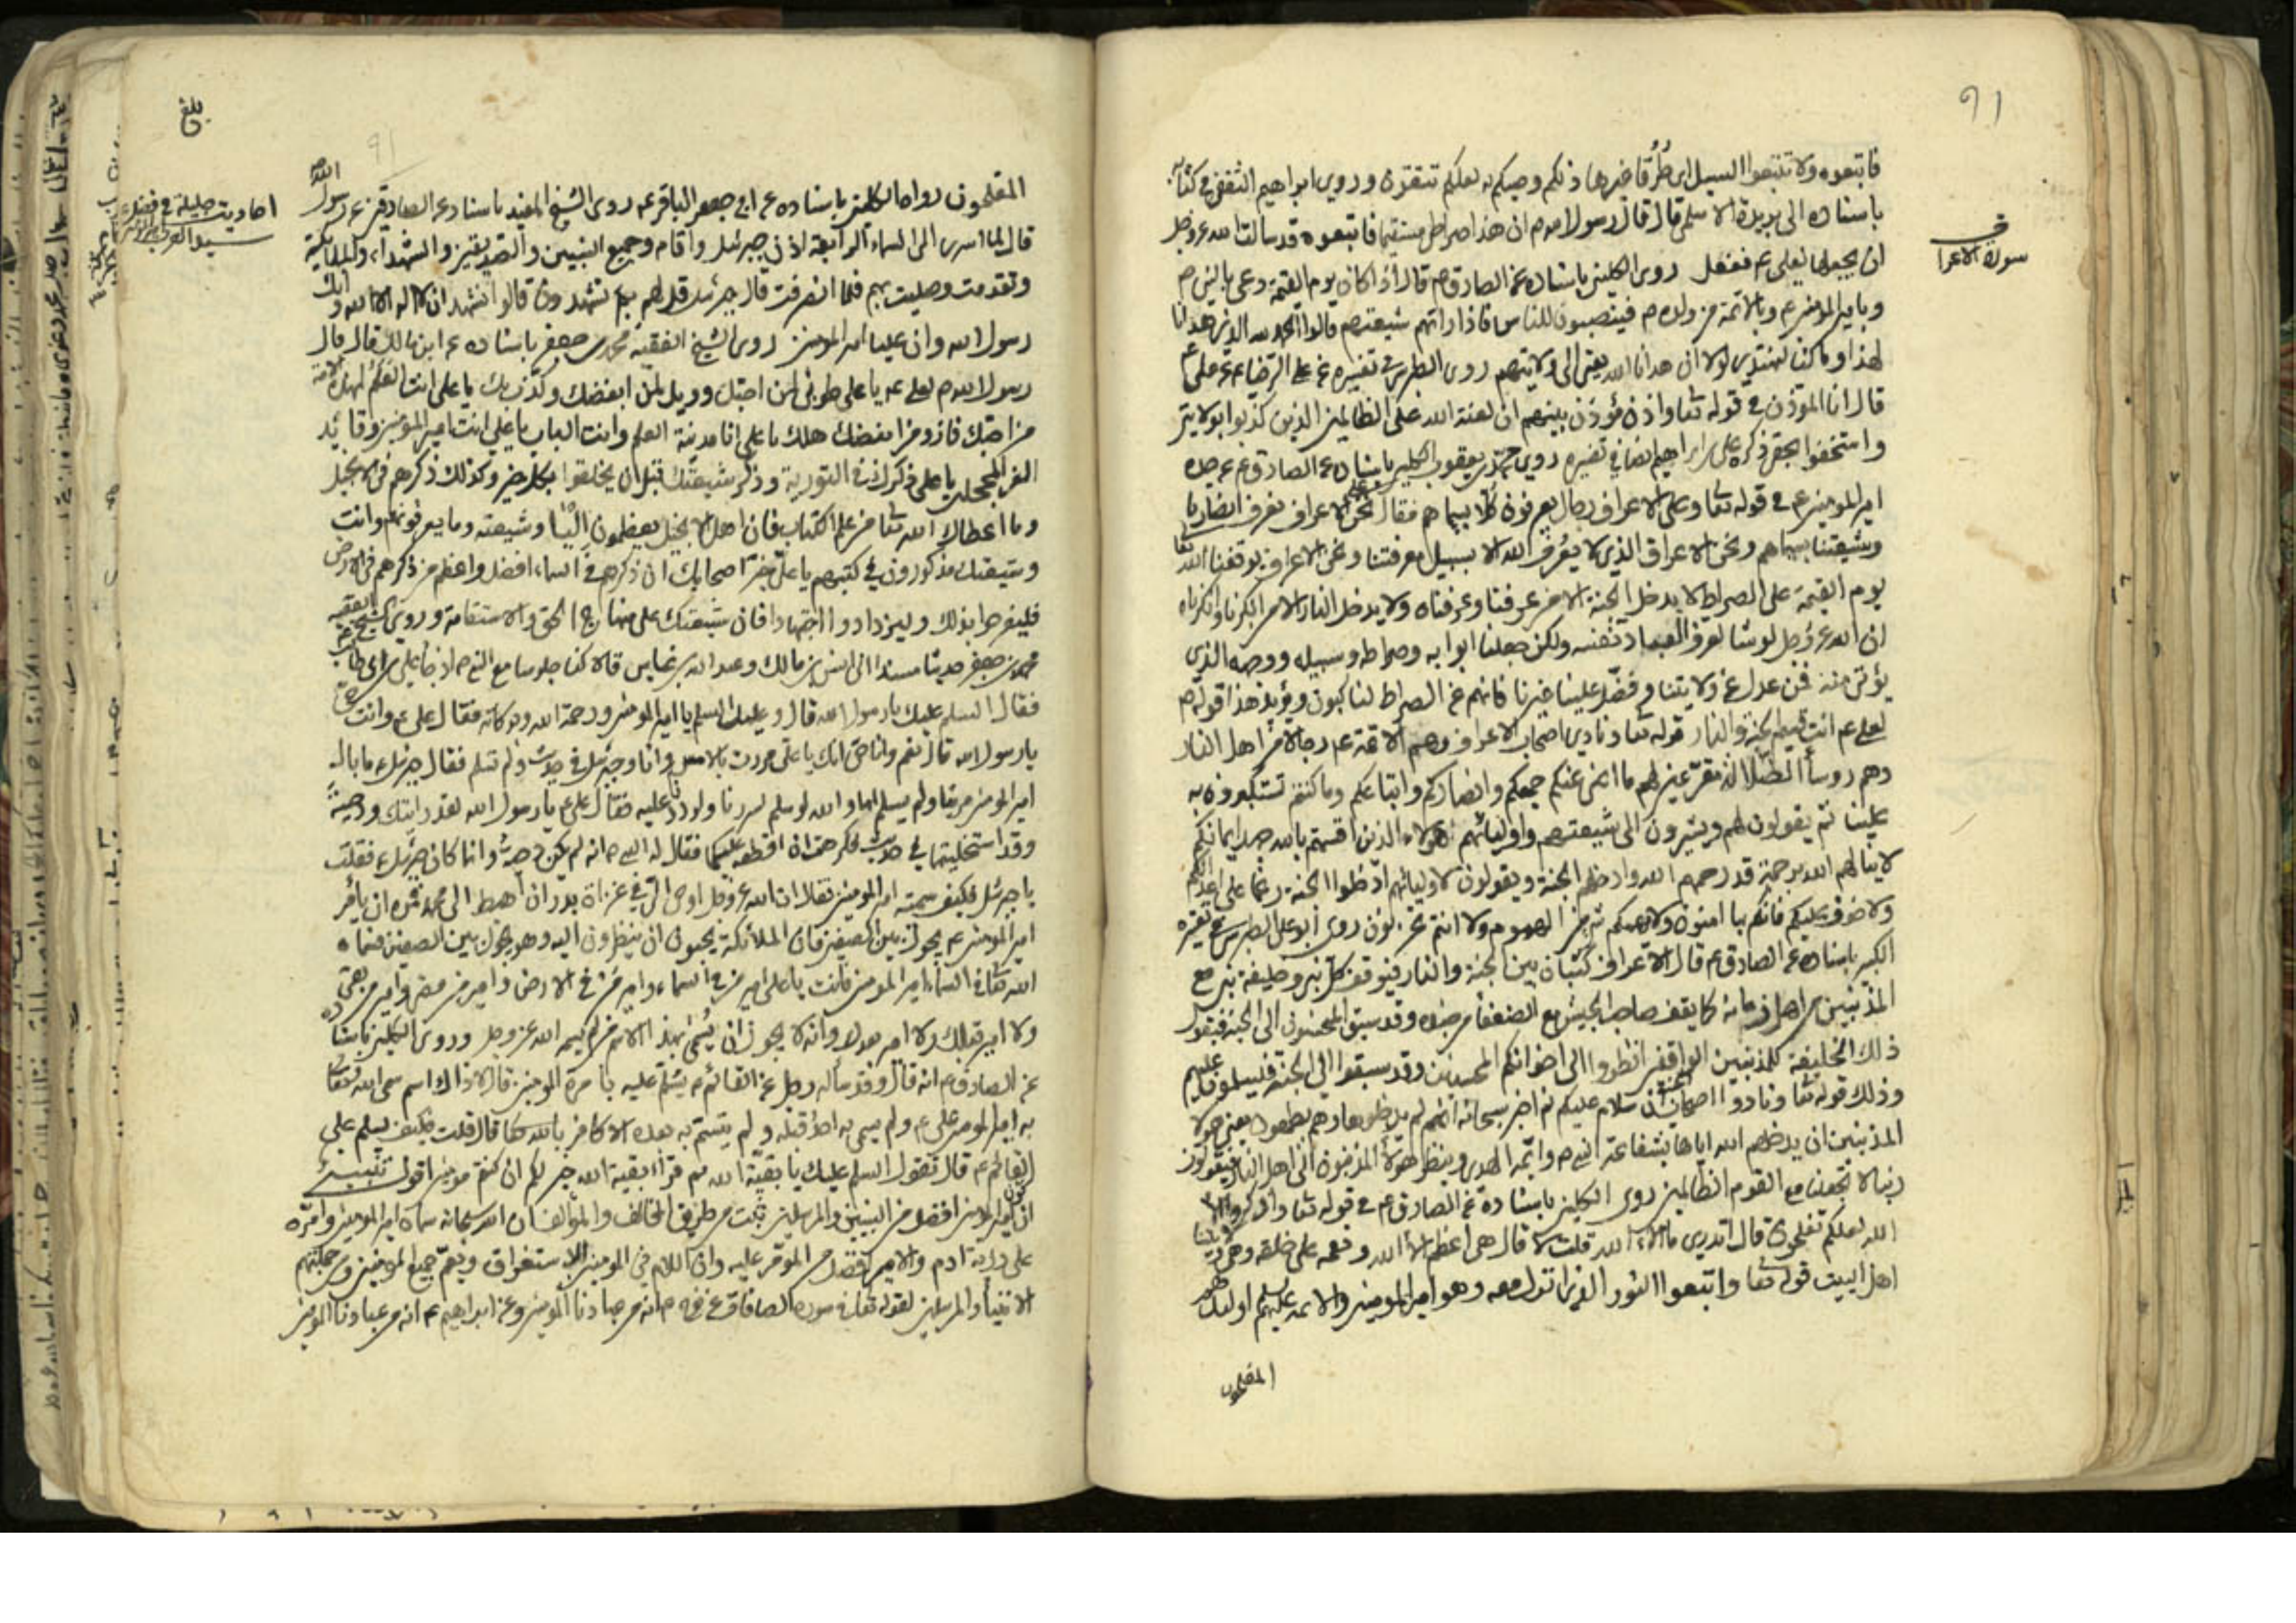 ٩١
فاتبعوه ولا تتبعوا السبل اي طرقا غيرها ذلكم وصيكم به لعلكم تتقون وروي ابراهيم الثقفي في كتابه
باسناده الى بريدة الاسلمي قال قال رسول الله ص ان هذا صراطي مستقيما فاتبعوه قد سالت الله عز وجل
في
سورة الاعرا
ان يجعلها لعلي ع ففعل روى الكليني باسناده عن الصادق ع م قال اذا كان يوم القيمة دعى بالنبي ص
وبامير المؤمنين ع وبالائمة من ولده م فينصبون للناس فاذا راتهم شيعتهم قالوا الحمد لله الذي هدانا
لهذا وما كنا لنهتدي لولا ان هدانا الله يعني الى ولايتهم روى الطبرسي في تفسيره عن الرضا ع عن علي ع
قال انا المؤذن في قوله تعا واذن مؤذن بينهم ان لعنة الله على الظالمين الذين كذبوا بولايتي
واستخفوا بحقي ذكره علي بن ابراهيم ايضا في تفسيره روى محمد بن يعقوب الكليني باسناده عن الصادق ع عن جده
امير المؤمنين ع في قوله تعا وعلى الاعراف رجال يعرفون كلا بسيماهم فقال نحن الاعراف نعرف انصارنا
وشيعتنا بسيماهم ونحن الاعراف الذي لا يعرف الله الا بسبيل معرفتنا ونحن الاعراف يوقفنا الله تعا
يوم القيمة على الصراط لا يدخل الجنة الا من عرفنا وعرفناه ولا يدخل النار الا من انكرنا وانكرناه
ان الله عز وجل لو شا لعرف العباد نفسه ولكن جعلنا ابوابه وصراطه وسبيله ووجهه الذي
يؤتى منه فمن عدل عن ولايتنا وفضل علينا غيرنا فانهم عن الصراط لناكبون ويؤيد هذا قوله ص
لعلي ع انت قسيم الجنة والنار قوله تعا ونادى اصحاب الاعراف وهم الائمة ع رجالا من اهل النار
وهم روسأ الضلالة مقرعين لهم ما اغنى عنكم جمعكم وانصاركم واتباعكم وما كنتم تستكبرون به
علينا ثم يقولون لهم ويشيرون الى شيعتهم واوليائهم اهؤلاء الذين اقسمتم بالله جهد ايمانكم
لا ينالهم الله برحمة قد رحمهم الله وادخلهم الجنة ويقولون لاوليائهم ادخلوا الجنة رغما على اعدائكم
ولا خوف عليكم فانكم بها امنون ولا يمسكم شئ من الهموم ولا انتم تحزنون روى ابو علي الطبرسي في تفسيره
الكبير باسناده عن الصادق ع قال الاعراف كثبان بين الجنة والنار فيوقف كل نبي وخليفة نبي مع
المذنبين من اهل زمانه كما يقف صاحب الجيش مع الضعفا من جنده وقد سبق المحسنون الى الجنة فيقول
ذلك الخليفة للمذنبين الواقفين انظروا الى اخوانكم المحسنين وقد سبقوا الى الجنة فيسلموا عليهم
وذلك قوله تعا ونادوا اصحاب الجنة ان سلام عليكم ثم اخبر سبحانه انهم لم يدخلوها وهم يطمعون يعني هؤلا
المذنبين ان يدخلهم الله اياها بشفاعة النبي ص وائمة الهدى وينظر هؤلأ المذنبون الى اهل النار فيقولون
ربنا لا تجعلنا مع القوم الظالمين روى الكليني باسناده عن الصادق ع في قوله تعا واذكروا الاء
الله لعلكم تفلحون قال اتدري ما الاء الله قلت لا قال هي اعظم الأ الله ونعمه على خلقه وهي ولايتنا
اهل البيت قوله تعا واتبعوا النور الذي انزل معه وهو امير المؤمنين والائمة عليهم السلم اولئك هم
المفلحون
بلغ
٩١
المفلحون رواه الكليني باسناده عن ابي جعفر الباقر ع روى الشيخ المفيد باسناده عن الصادقين ع رسول الله
احاديث جليلة في فضل
قال لما اسرى الى السماء الرابعة اذن جبرئيل واقام وجمع النبيين والصديقين والشهداء والملائكة
وتقدمت وصليت بهم فلما انصرفت قال جبرئيل قل لهم بم تشهدون قالوا نشهد ان لا اله الا الله وانك
رسول الله وان عليا امير المؤمنين روى الشيخ الفقيه محمد بن جعفر باسناده عن ابن مالك قال قال
رسول الله ص لعلي ع يا علي طوبى لمن احبك وويل لمن ابغضك وكذب بك يا علي انت العلم لهذه الامة
من احبك فاز ومن ابغضك هلك يا علي انا مدينة العلم وانت الباب يا علي انت امير المؤمنين وقائد
الغر المحجلين يا علي ذكرك في التورية وذكر شيعتك قبل ان يخلقوا بكل خير وكذلك ذكرهم في الانجيل
وما اعطاك الله تعا من علم الكتاب فان اهل الانجيل يعظمون اليا وشيعته وما يعرفونهم وانت
وشيعتك مذكورون في كتبهم يا علي خبر اصحابك ان ذكرهم في السماء افضل واعظم من ذكرهم في الارض
فليفرحوا بذلك وليزدادوا اجتهادا فان شيعتك على منهاج الحق والاستقامة وروى الشيخ الفقيه
محمد بن جعفر حديثا مسندا الى انس بن مالك وعبد الله بن عباس قالا كنا جلوسا مع النبي ص اذ جا علي بن ابي طالب
فقال السلم عليك يا رسول الله قال وعليك السلم يا امير المؤمنين ورحمة الله وبركاته فقال علي ع وانت حي
يا رسول الله قال نعم وانا حي انك يا علي مررت بالامس وانا وجبرئيل في حديث ولم تسلم فقال جبرئيل ما بال
امير المؤمنين مر بنا ولم يسلم اما والله لو سلم لسررنا ولرددنا عليه فقال علي ع يا رسول الله لقد رايتك ودحية
وقد استخليتما في حديث فكرهت ان اقطعه عليكما فقال له النبي ص انه لم يكن دحية وانما كان جبرئيل ع فقلت
يا جبرئيل فكيف سميته امير المؤمنين فقال ان الله عز وجل اوحى الي في غزاة بدر ان اهبط الى محمد فمره ان يأمر
امير المؤمنين ع يجول بين الصفين فان الملائكة يحبون ان ينظرون اليه وهو يجول بين الصفين فسماه
الله تعا في السماء امير المؤمنين فانت يا علي امير من في السماء وامير من في الارض وامير من مضى وامير من بقي
ولا امير قبلك ولا امير بعدك وانه لا يجوز ان يسمى بهذا الاسم من لم يسمه الله عز وجل وروى الكليني باسناده
عن الصادق ع انه قال وقد سأله رجل عن القائم ع يسلم عليه بامرة المؤمنين قال لا ذاك اسم سمى الله تعا
به امير المؤمنين علي ع ولم يسمى به احد قبله ولم يتسم به بعده الا كافر بالله تعا قال قلت فكيف يسلم على
القائم ع قال تقول السلم عليك يا بقية الله ثم قرأ بقية الله خير لكم ان كنتم مؤمنين اقول تنبيه
ان امير المؤمنين افضل من النبيين والمرسلين ثبت من طريق المخالف والمؤالف ان الله سبحانه سماه امير المؤمنين وامره
على ذرية ادم والامير افضل من المؤمر عليه وان اللام في المؤمنين للاستغراق ويعم جميع المؤمنين ومن جملتهم
الانبيأ والمرسلين لقوله تعا في سورة الصافات عن نوح ع انه من عبادنا المؤمنين وعن ابراهيم ع انه من عبادنا المؤمنين